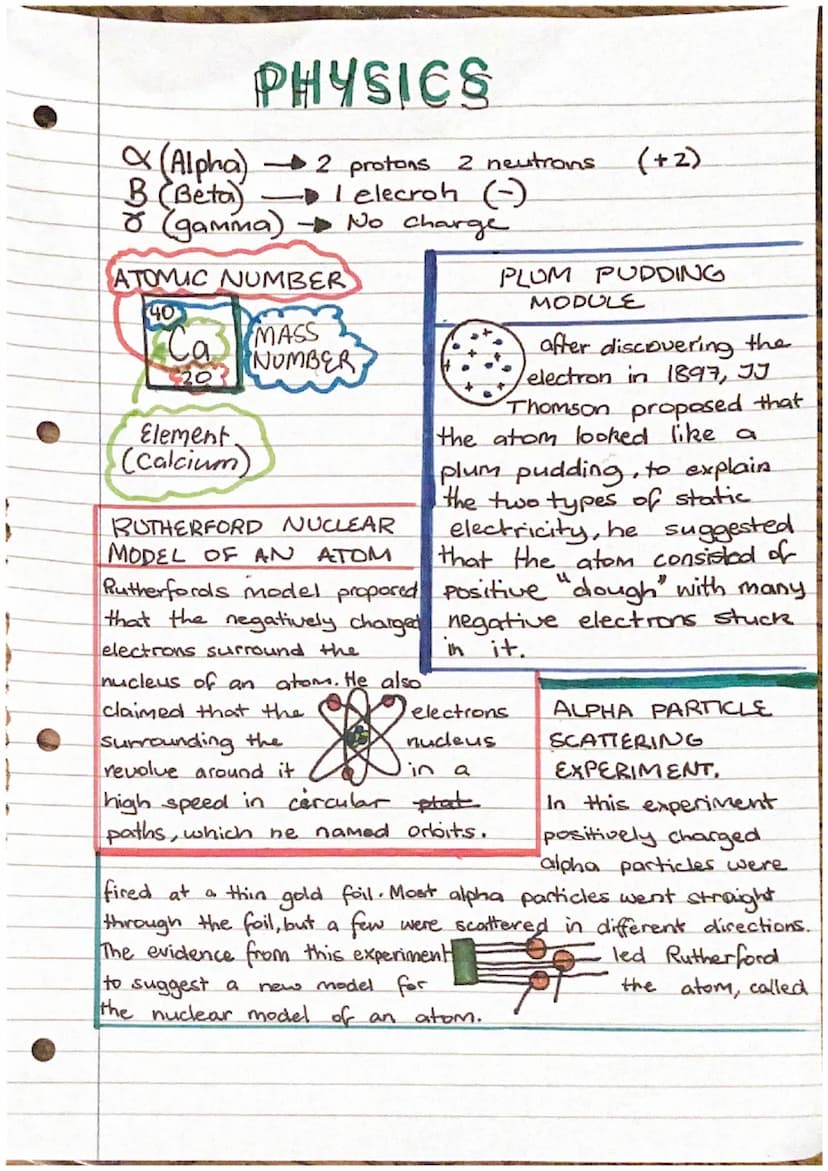 PHYSICS
α (Alpha) → 2 protons 2 neutrons (+2)
B (Beta) → 1 elecroh (-)
γ (gamma) → No charge
ATOMIC NUMBER
40
Ca
20
MASS
NUMBER
Element
(Calcium)
PLUM PUDDING
MODULE
after discovering the
electron in 1897, JJ
Thomson proposed that
the atom looked like a
plum pudding, to explain
the two types of static
electricity, he suggested
that the atom consisted of
positive "dough" with many
negative electrons stuck
in it.
RUTHERFORD NUCLEAR
MODEL OF AN ATOM
Rutherfords model proposed
that the negatively charged
electrons surround the
nucleus of an atom. He also
claimed that the electrons
surrounding the nucleus
revolve around it in a
high speed in circular
paths, which he named orbits.
ALPHA PARTICLE
SCATTERING
EXPERIMENT.
In this experiment
positively charged
alpha particles were
fired at a thin gold foil. Most alpha particles went straight
through the foil, but a few were scattered in different directions.
The evidence from this experiment led Rutherford
to suggest a new model for the atom, called
the nuclear model of an atom.